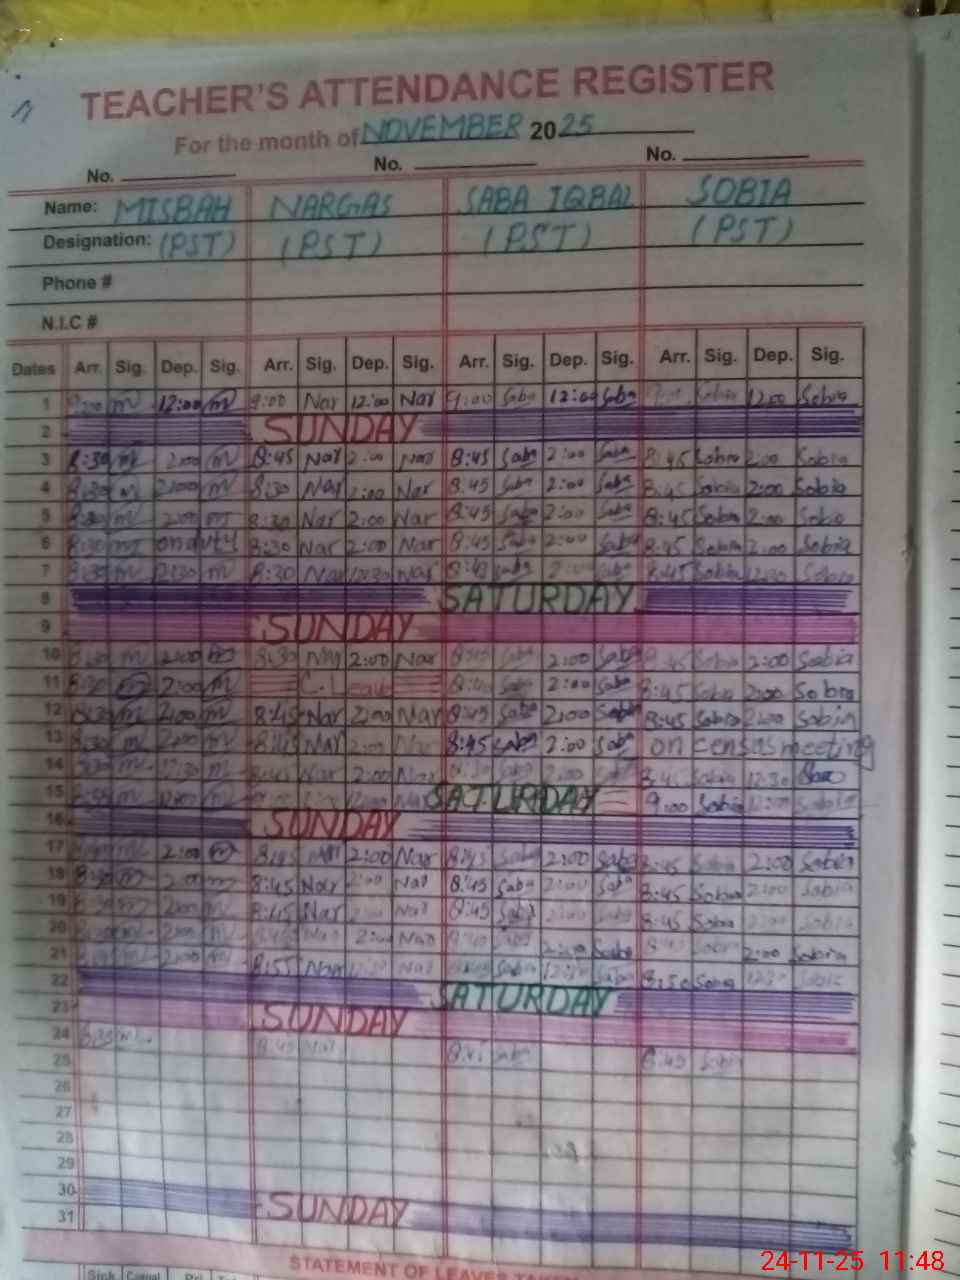 TEACHER'S ATTENDANCE REGISTER
For the month of NOVEMBER 2025
No. No. No.
Name: MISBAH NARGAS SABA IQBAL SOBIA
Designation: (PST) (PST) (PST) (PST)
Phone #
N.I.C #
Dates Arr. Sig. Dep. Sig. Arr. Sig. Dep. Sig. Arr. Sig. Dep. Sig. Arr. Sig. Dep. Sig.
1 9:00 m 12:00 m 9:00 Nar 12:00 Nar 9:00 Saba 12:00 Saba Sobia 12:00 Sobia
2 SUNDAY
3 8:30 m 2:00 m 8:45 Nar 2:00 Nar 8:45 Saba 2:00 Saba 8:45 Sobia 2:00 Sobia
4 8:30 m 2:00 m 8:30 Nar 2:00 Nar 8:45 Saba 2:00 Saba 8:45 Sobia 2:00 Sobia
5 8:30 m 2:00 m 8:30 Nar 2:00 Nar 8:45 Saba 2:00 Saba 8:45 Sobia 2:00 Sobia
6 8:30 m on duty 8:30 Nar 2:00 Nar 8:45 Saba 2:00 Saba 8:45 Sobia 2:00 Sobia
7 8:30 m 12:30 m 8:30 Nar 12:30 Nar Saba Saba 8:45 Sobia 12:30 Sobia
8 SATURDAY
9 SUNDAY
10 8:30 m 2:00 m 8:30 Nar 2:00 Nar 8:45 Saba 2:00 Saba 8:45 Sobia 2:00 Sobia
11 8:30 m 2:00 m C. Leave Saba 2:00 Saba 8:45 Sobia 2:00 Sobia
12 8:30 m 2:00 m 8:45 Nar 2:00 Nar 8:45 Saba 2:00 Saba 8:45 Sobia 2:00 Sobia
13 8:30 m 2:00 m 8:45 Nar 2:00 Nar 8:45 Saba 2:00 Saba on census meeting
14 8:30 m 12:30 m 8:45 Nar 2:00 Nar Saba 2:00 Saba 8:45 Sobia 12:30
15 m 12:00 m 12:00 Nar SATURDAY 9:00 Sobia 12:00 Sobia
16 SUNDAY
17 m 2:00 m 8:45 Nar 2:00 Nar 8:45 Saba 2:00 Saba 8:45 Sobia 2:00 Sobia
18 8:30 m 2:00 m 8:45 Nar 2:00 Nar 8:45 Saba 2:00 Saba 8:45 Sobia 2:00 Sobia
19 8:30 m 2:00 m 8:45 Nar 2:00 Nar 8:45 Saba 2:00 Saba 8:45 Sobia 2:00 Sobia
20 m 2:00 m Nar 2:00 Nar Saba 2:00 Saba Sobia 2:00 Sobia
21 m 2:00 m 8:55 Nar Nar Saba Saba 8:50 Sobia 12:30 Sobia
22 SATURDAY
23 SUNDAY
24 8:35 m 8:45 Nar 8:45 Saba 8:45 Sobia
25
26
27
28
29
30 SUNDAY
31
STATEMENT OF LEAVES TAKEN
Sick Casual
24-11-25 11:48